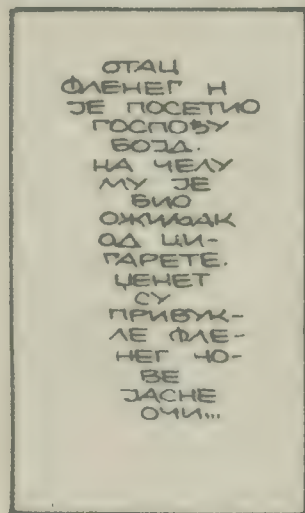 ОТАЦ
ФЛЕНЕГ Н
ЈЕ ПОСЕТИО
ГОСПОЂУ
БОЈД.
НА ЧЕЛУ
МУ ЈЕ
БИО
ОЖИЉАК
ОД ЦИ-
ГАРЕТЕ.
ЏЕНЕТ
СУ
ПРИВУК-
ЛЕ ФЛЕ-
НЕГ НО-
ВЕ
ЈАСНЕ
ОЧИ...